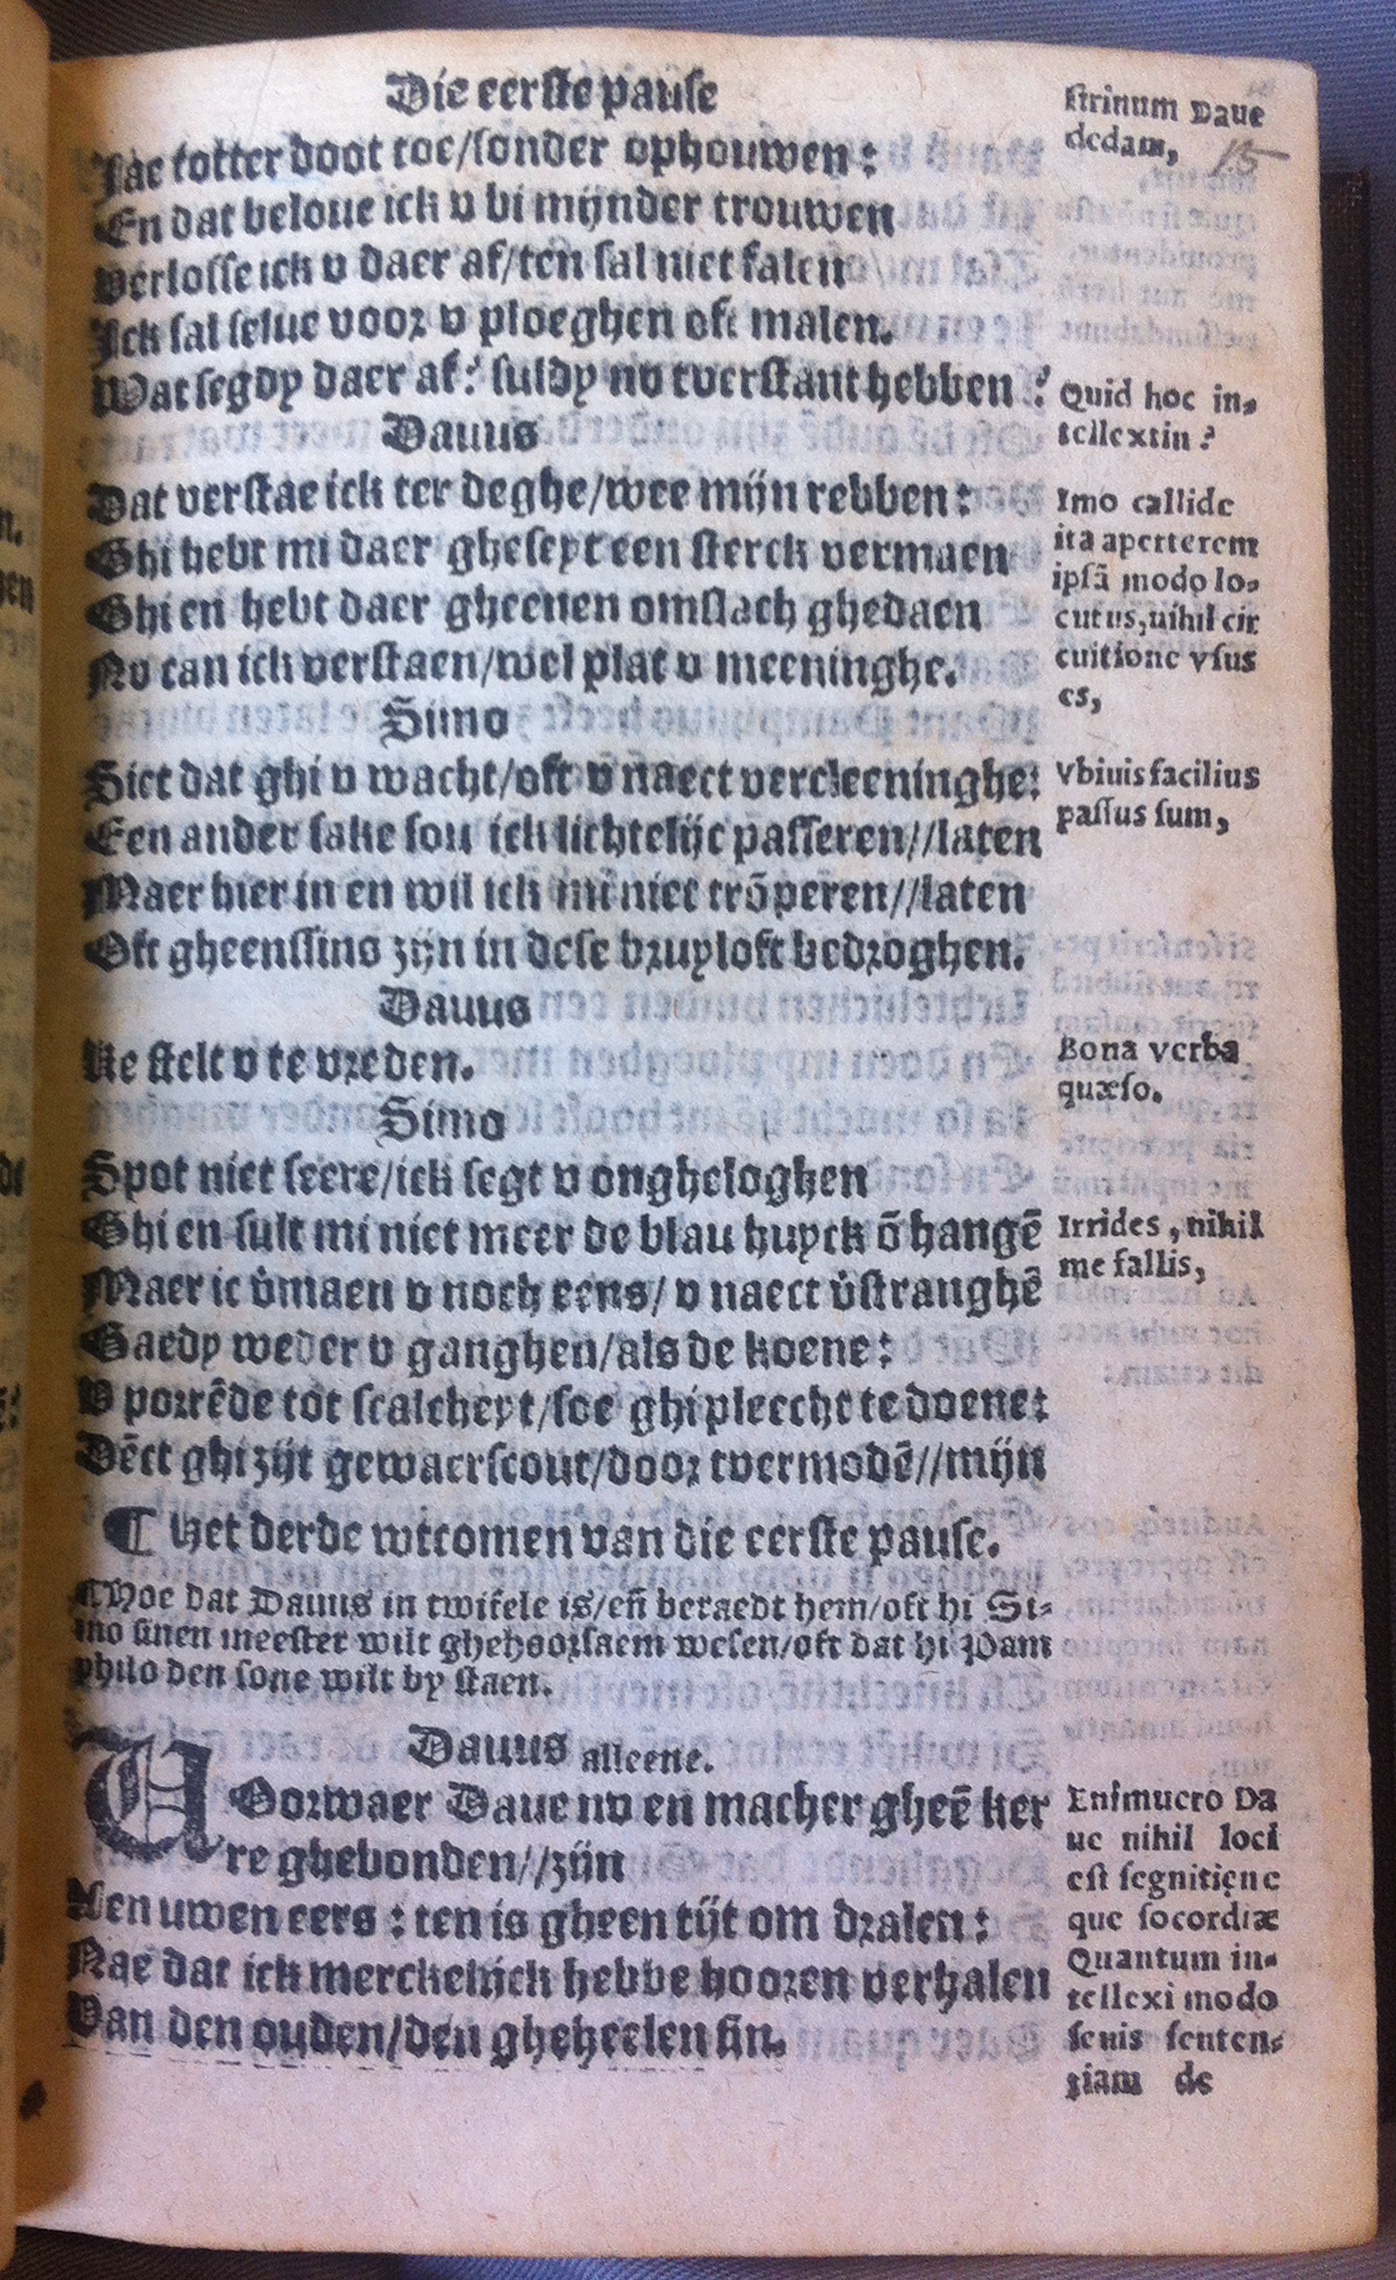 Die eerste pause
Jae totter doot toe/sonder ophouwen:
En dat beloue ick v bi mijnder trouwen
Verlosse ick v daer af/ten sal niet falen
Ick sal selue voor v ploeghen oft malen.
Wat segdy daer af? suldy nv tverstant hebben?
Dauus
Dat verstae ick ter deghe/wee mijn rebben:
Ghi hebt mi daer gheseyt een sterck vermaen
Ghi en hebt daer gheenen omslach ghedaen
Nv can ick verstaen/wel plat v meeninghe.
Simo
Siet dat ghi v wacht/oft v naect vercleeninghe:
Een ander sake sou ick lichtelijc passeren//laten
Maer hier in en wil ick mi niet trōperen//laten
Oft gheenssins zijn in dese bruyloft bedroghen.
Dauus
Ke stelt v te vreden.
Simo
Spot niet seere/ick segt v ongheloghen
Ghi en sult mi niet meer de blau huyck ō hangē
Maer ic v̄maen v noch eens/ v naect v̄stranghē
Gaedy weder v ganghen/als de koene:
V porrēde tot scalcheyt/soe ghi pleecht te doene:
Dēct ghi zijt gewaerscout/door tvermodē//mijn
¶ Het derde wtcomen van die eerste pause.
¶ Hoe dat Dauus in twifele is/en̄ beraedt hem/oft hi Si-
mo sinen meester wilt ghehoorsaem wesen/oft dat hi Pam
philo den sone wilt by staen.
Dauus alleene.
VOorwaer Daue nv en macher gheē ker
re ghebonden//zijn
Aen uwen eers: ten is gheen tijt om dralen:
Nae dat ick merckelijck hebbe hooren verhalen
Van den ouden/den gheheelen sin.
strinum Daue
dedam,
15
Quid hoc in-
tellextin?
Imo callide
ita aperterem
ipsā modo lo-
cutus, nihil cir
cuitione vsus
es,
Vbiuis facilius
passus sum,
Bona verba
quæso.
Irrides, nihil
me fallis,
Enimuero Da
ue nihil loci
est segnitięne
que socordiæ
Quantum in-
tellexi modo
senis senten-
tiam de